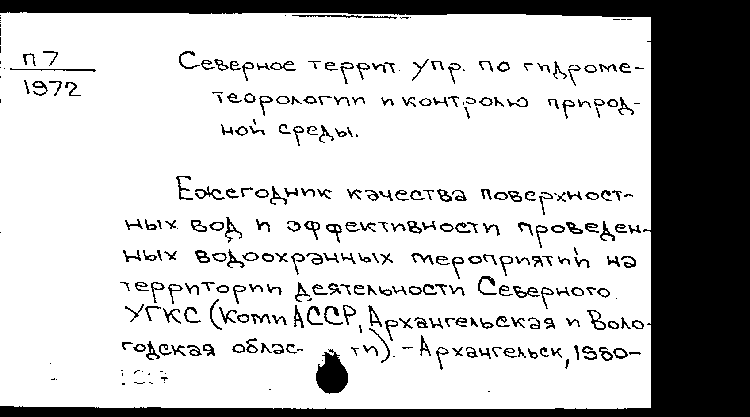 П7
1972
Северное террит. упр. по гидроме-
теорологии и контролю природ-
ной среды.
Ежегодник качества поверхност-
ных вод и эффективности проведен-
ных водоохранных мероприятий на
территории деятельности Северного
УГКС (Коми АССР, Архангельская и Воло-
годская облас- ти). - Архангельск, 1980-